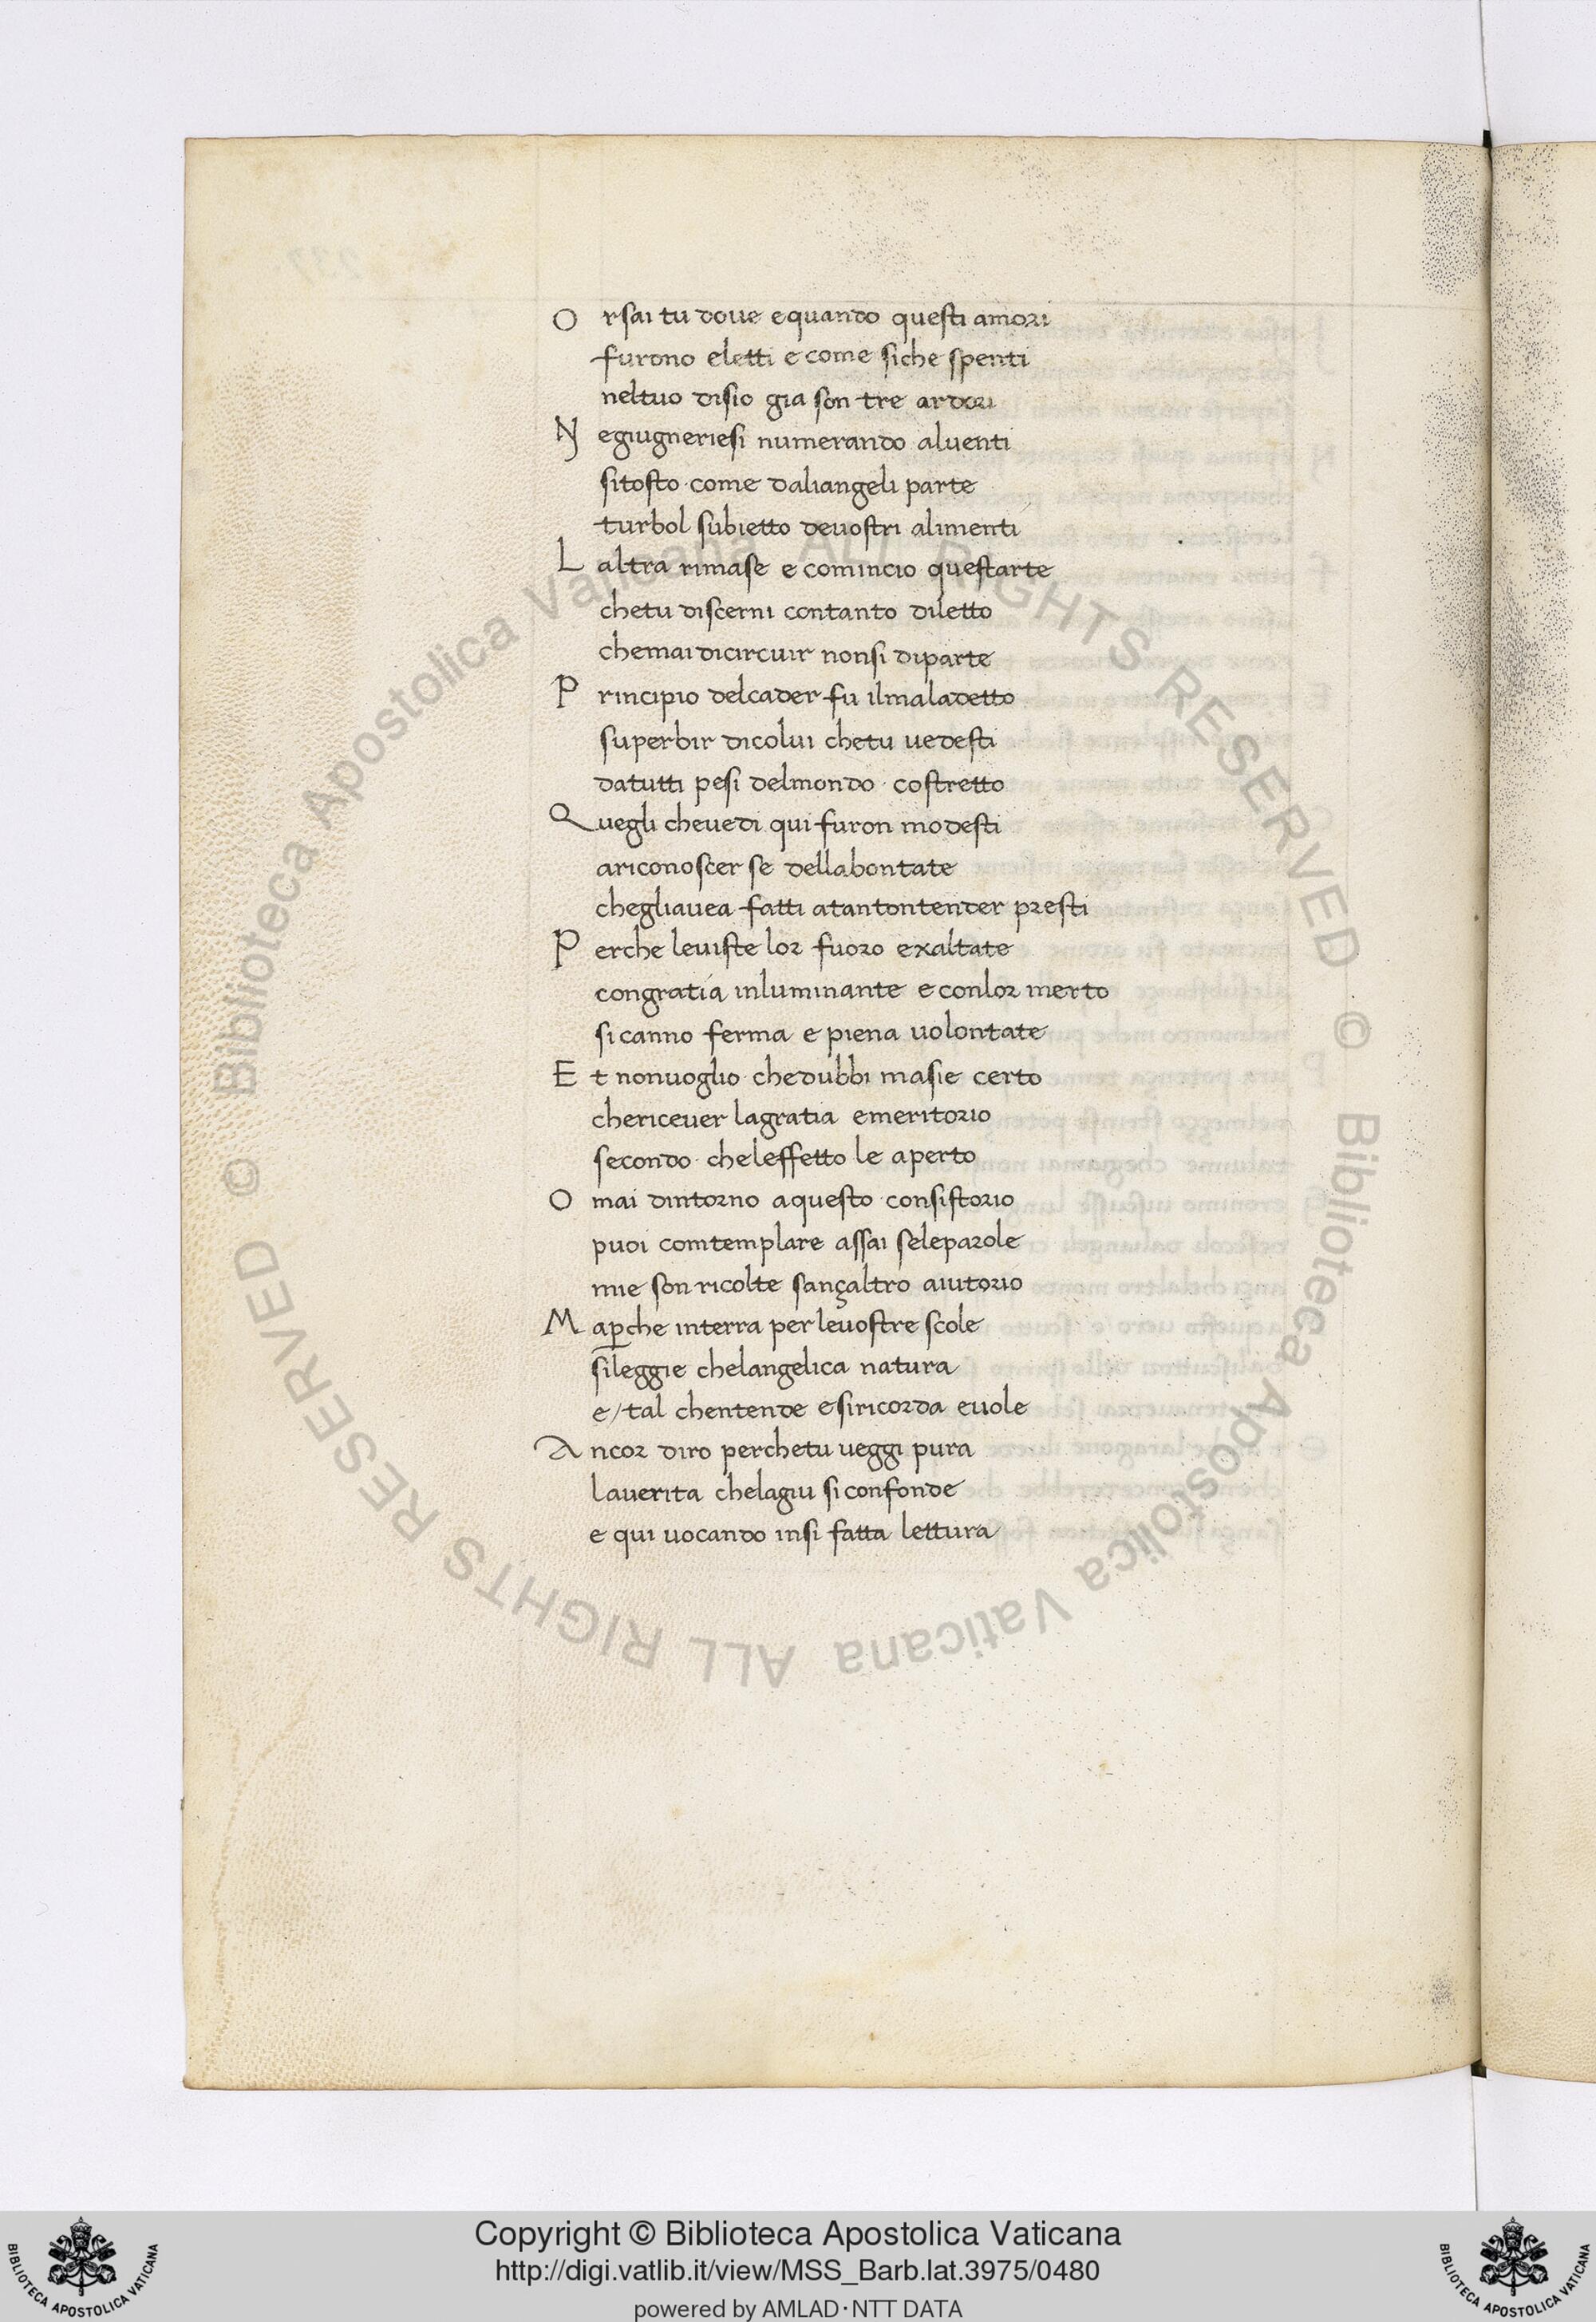 O rsai tu doue equando questi amori
furono eletti e come siche spenti
neltuo disio gia son tre ardori
N egiugneriesi numerando aluenti
sitosto come daliangeli parte
turbol subietto deuostri alimenti
L altra rimase e comincio questarte
chetu discerni contanto diletto
chemai dicircuir nonsi diparte
P rincipio delcader fu ilmaladetto
superbir dicolui chetu uedesti
datutti pesi delmondo costretto
Q uegli cheuedi qui furon modesti
ariconoscer se dellabontate
chegliauea fatti atantontender presti
P erche leuiste lor fuoro exaltate
congratia inluminante e conlor merto
si canno ferma e piena uolontate
E t nonuoglio chedubbi masie certo
chericeuer lagratia emeritorio
secondo cheleffetto le aperto
O mai dintorno aquesto consistorio
puoi comtemplare assai seleparole
mie son ricolte sançaltro aiutorio
M ap̱che interra per leuostre scole
sileggie chelangelica natura
e/tal chentende esiricorda euole
A ncor diro perchetu ueggi pura
lauerita chelagiu si confonde
e qui uocando insi fatta lettura
© Biblioteca Apostolica Vaticana ALL RIGHTS RESERVED © Biblioteca Apostolica Vaticana ALL RIGHTS RESERVED
Copyright © Biblioteca Apostolica Vaticana
http://digi.vatlib.it/view/MSS_Barb.lat.3975/0480
powered by AMLAD·NTT DATA
BIBLIOTECA APOSTOLICA VATICANA
BIBLIOTECA APOSTOLICA VATICANA